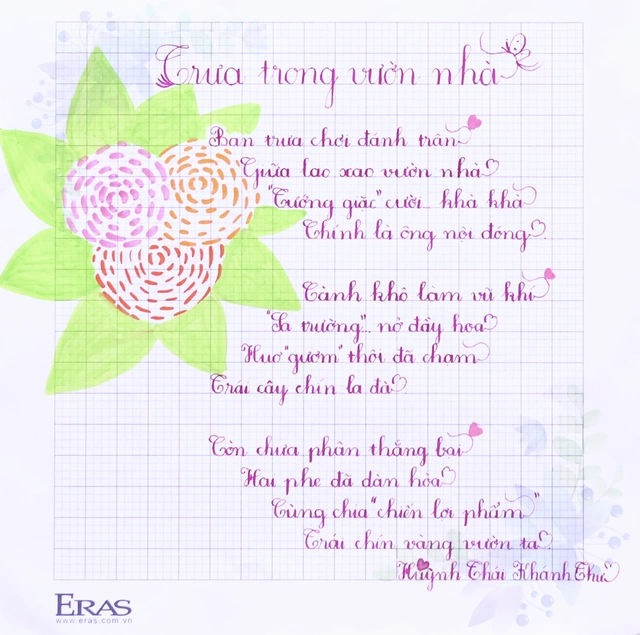 Trưa trong vườn nhà
Ban trưa chơi đánh trận
Giữa lao xao vườn nhà
"Tướng giặc" cười... khà khà
Chính là ông nội đóng
Cành khô làm vũ khí
"Sa trường"... nở đầy hoa
Huơ "gươm" thôi đã chạm
Trái cây chín la đà.
Còn chưa phân thắng bại
Hai phe đã dàn hòa
Cùng chia "chiến lợi phẩm"
Trái chín vàng vườn ta.
Huỳnh Thái Khánh Thư
ERAS
www.eras.com.vn